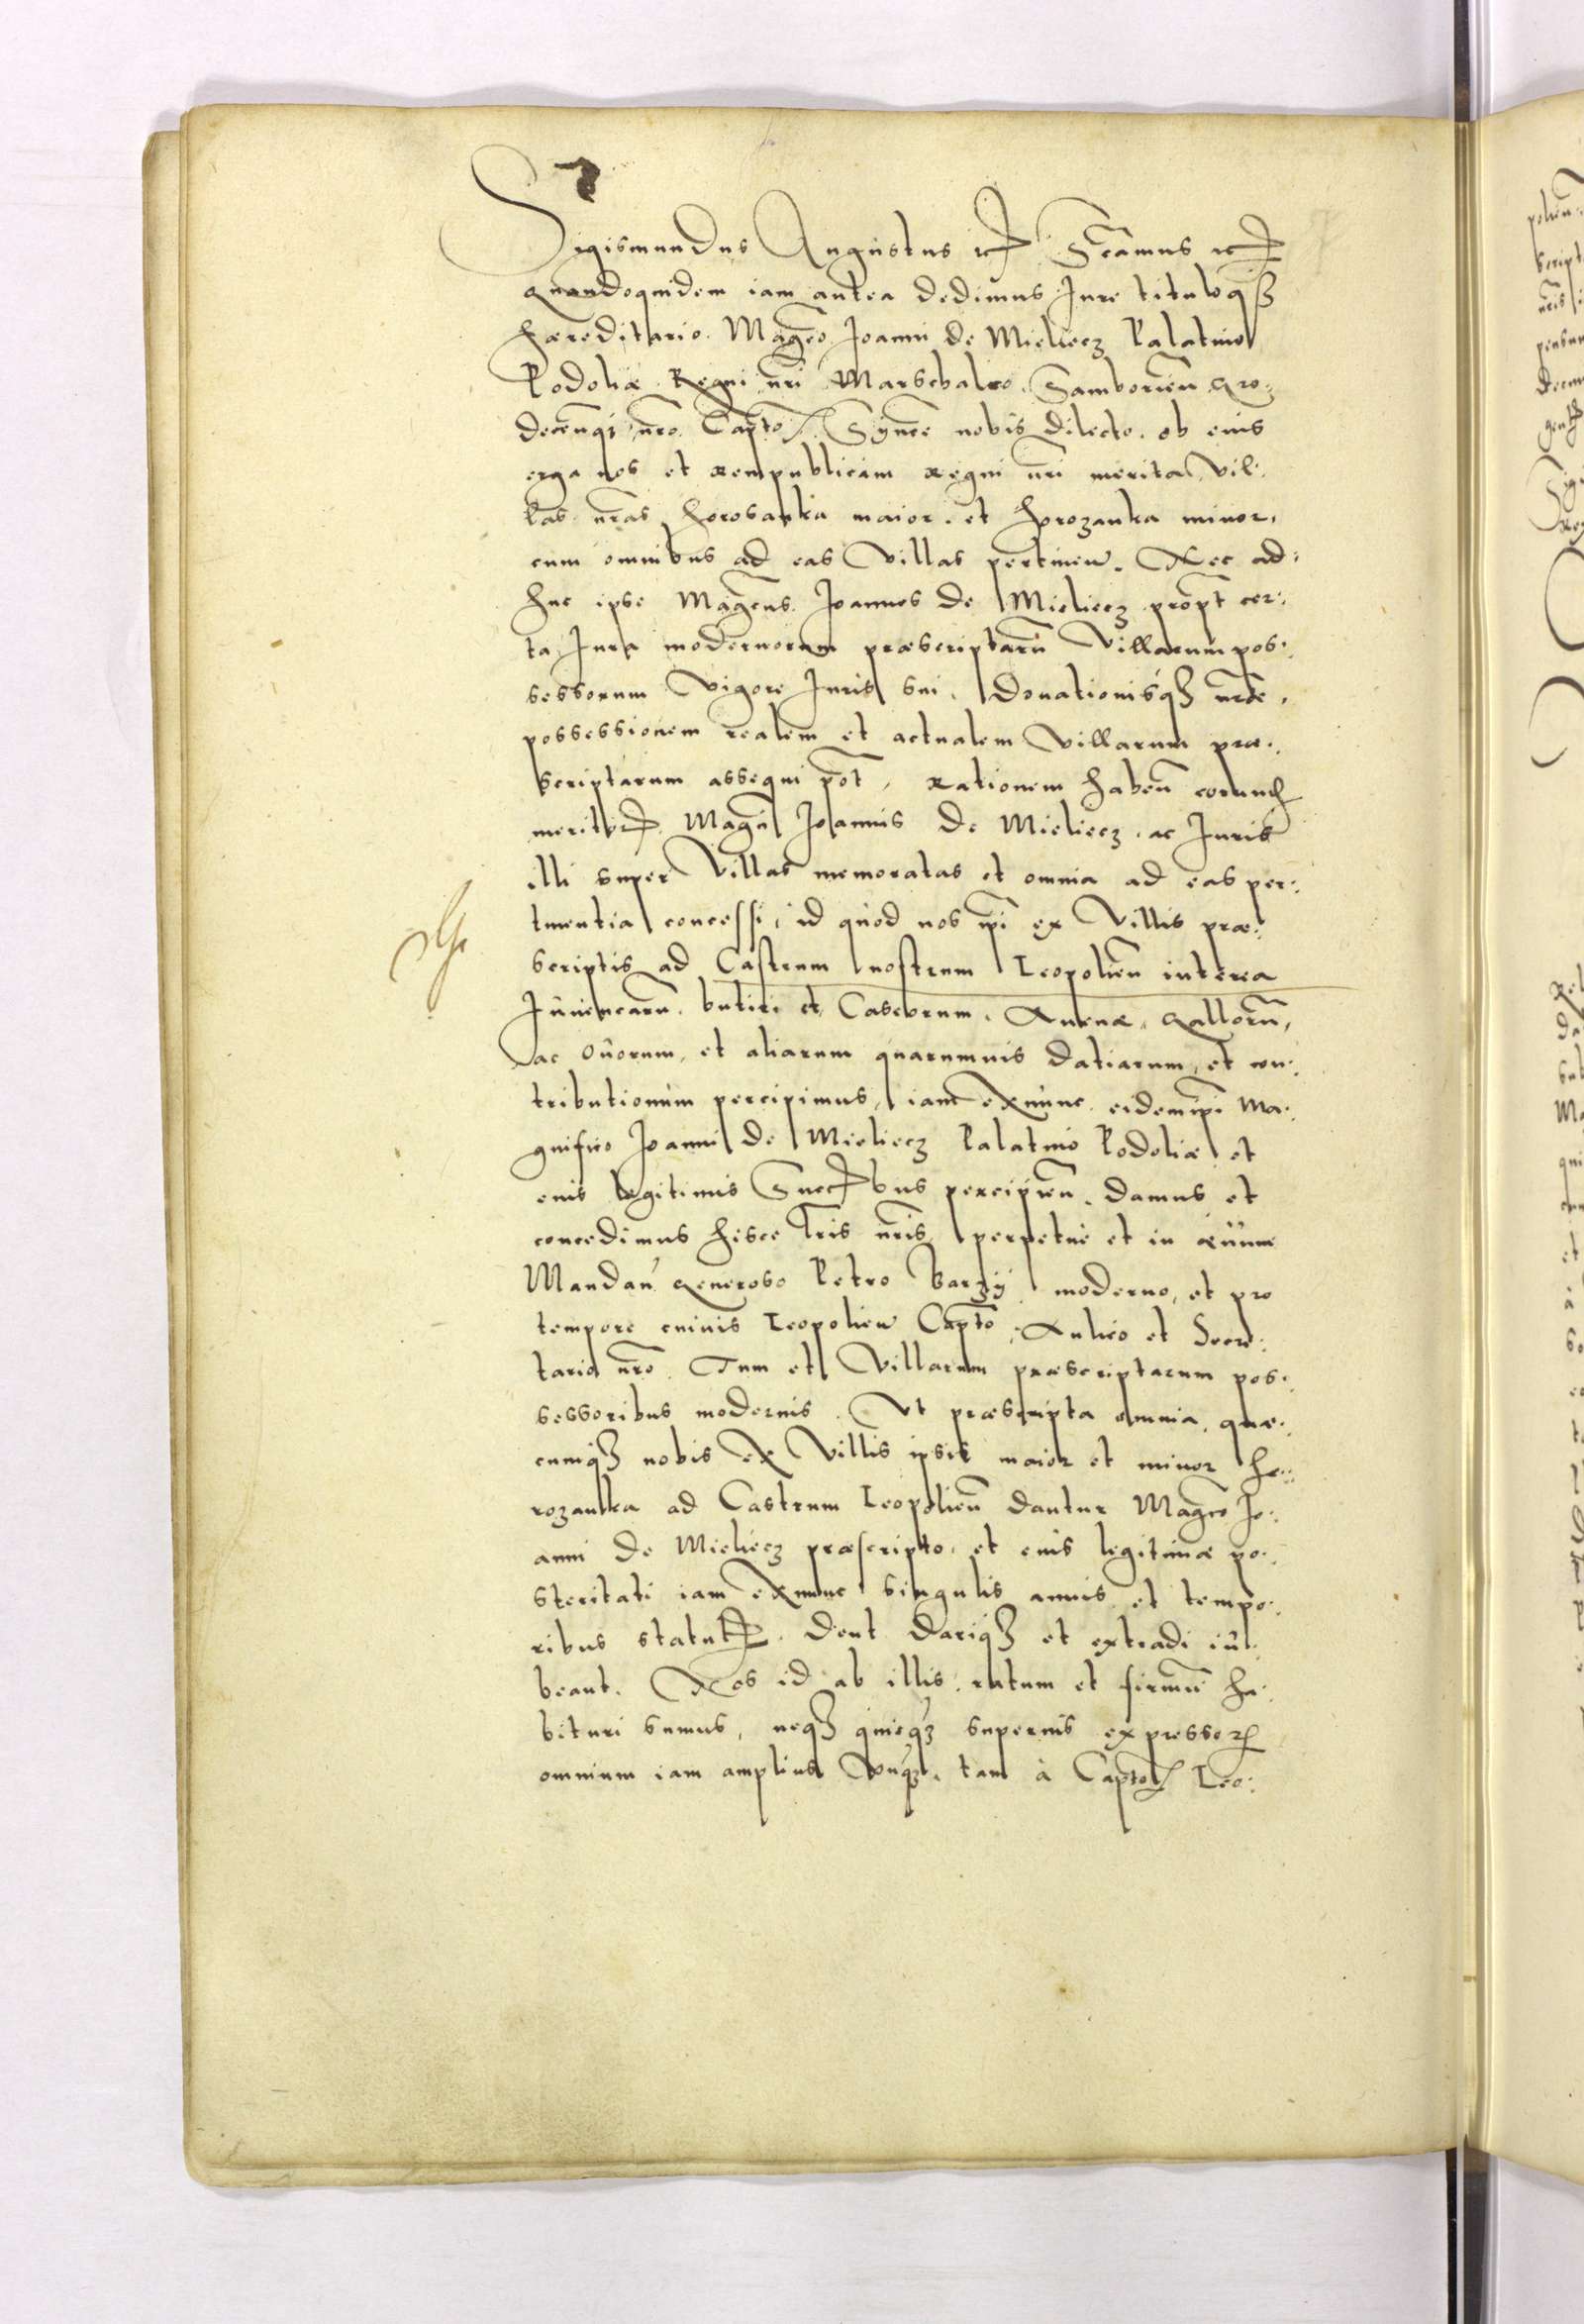 Sigismundus Augustus etc Sčamus etc
Quandoquidem iam antea dedimus Jure tituloq3
hæreditario. Mageo Joanni de Mieliecz Palatino
Podoliæ Regni nr̃i Marschalco. Samborien̄ Gro:
decenq3 nr̃o Capto. Syncē nobis dilecto. ob eius
erga nos et rempublicam regni nr̃i merita, vil:
las nr̃as horosanka maior. et horozanka minor,
cum omnibus ad eas villas pertinen̄. Nec ad:
huc ipse Mageus Joannes de Mieliecz propt̄ cer:
ta Jura modernorum præscriptaru̅ villarum pos:
sessorum vigore Juris sui, donationisq3 nr̃æ,
possessionem realem et actualem villarum præ:
scriptarum assequi pōt, rationem haben̄ eorund
meritor Magci Joannis de Mieliecz. ac Juris
illi super villas memoratas et omnia ad eas per:
tinentia concessi, id quod nos ip̄i ex villis præ:
scriptis ad Castrum nostrum Leopolien̄ interea
Juuencaru̅. butiri et Caseorum. Auenæ, Galloru̅,
ac Ouorum, et aliarum quarumuis datiarum, et con:
tributionum percipimus, iam exnunc eidem ip̄i Ma:
gnifico Joanni de Mieliecz Palatino Podoliæ et
eius legitimis Succ̄bus percipien̄. damus et
concedimus hisce lr̃is nr̃is perpetuè et in æuum
Mandan̄ Generoso Petro Barzÿ moderno, et pro
tempore cuiuis Leopolien̄ Capto, Aulico et Secre:
tario nr̃o. Tum et villarum præscriptarum pos:
sessoribus modernis. Vt præscripta omnia, quæ:
cumq3 nobis ex villis ipsis maior et minor ho:
rozanka ad Castrum Leopolien̄ dantur Mageo Jo:
anni de Mieliecz præscripto. et eius legitimæ po:
steritati iam exnunc singulis annis et tempo:
ribus statutis. dent dariq3 et extradi iu:
beant. Nos id ab illis ratum et firmu̅ ha:
bituri sumus, neq3 quicq3 superius expressor
omnium iam amplius vnq3. tam à Capto Leo: